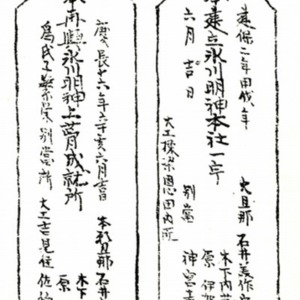 建保二年甲戌年
大旦那 石井美作
奉建立氷川明神本社一宇
木下内
原 伊
六月吉日
別當
神宮寺
大工棟梁恩田内所
慶長十六年辛亥六月吉日
本社旦那 石井
木下
原
奉再興氷川明神上葺成就所
為氏子繁栄 別當所
大工吉見住 佐